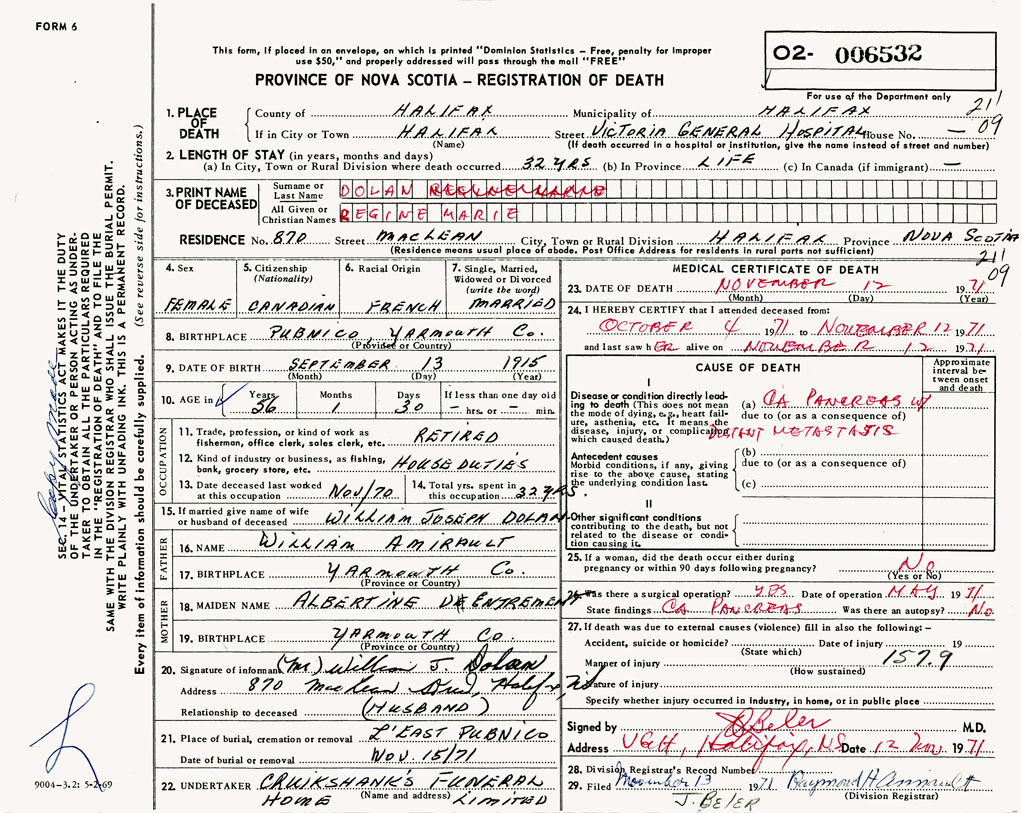 FORM 6
This form, if placed in an envelope, on which is printed "Dominion Statistics – Free, penalty for improper
use $50," and properly addressed will pass through the mail "FREE"
PROVINCE OF NOVA SCOTIA – REGISTRATION OF DEATH
O2- 006532
For use of the Department only
211
09
1. PLACE OF DEATH
County of HALIFAX Municipality of HALIFAX
If in City or Town HALIFAX Street VICTORIA GENERAL HOSPITAL House No. —
(Name) (If death occurred in a hospital or institution, give the name instead of street and number)
2. LENGTH OF STAY (in years, months and days)
(a) In City, Town or Rural Division where death occurred 32 YRS (b) In Province LIFE (c) In Canada (if immigrant) —
3. PRINT NAME OF DECEASED
Surname or Last Name DOLAN
All Given or Christian Names REGINE MARIE
RESIDENCE No. 870 Street MACLEAN City, Town or Rural Division HALIFAX Province NOVA SCOTIA
(Residence means usual place of abode. Post Office Address for residents in rural parts not sufficient)
211
09
4. Sex
FEMALE
5. Citizenship (Nationality)
CANADIAN
6. Racial Origin
FRENCH
7. Single, Married, Widowed or Divorced (write the word)
MARRIED
8. BIRTHPLACE PUBNICO, YARMOUTH Co.
(Province or Country)
9. DATE OF BIRTH SEPTEMBER 13 1915
(Month) (Day) (Year)
10. AGE in Years 56 Months 1 Days 30 If less than one day old – hrs. or – min.
OCCUPATION
11. Trade, profession, or kind of work as fisherman, office clerk, sales clerk, etc. RETIRED
12. Kind of industry or business, as fishing, bank, grocery store, etc. HOUSE DUTIES
13. Date deceased last worked at this occupation NOV/70
14. Total yrs. spent in this occupation 32 YRS.
15. If married give name of wife or husband of deceased WILLIAM JOSEPH DOLAN
FATHER
16. NAME WILLIAM AMIRAULT
17. BIRTHPLACE YARMOUTH Co.
(Province or Country)
MOTHER
18. MAIDEN NAME ALBERTINE D'ENTREMENT
19. BIRTHPLACE YARMOUTH Co.
(Province or Country)
20. Signature of informant (Mr) William J. Dolan
Address 870 MacLean Halifax, NS
Relationship to deceased (HUSBAND)
21. Place of burial, cremation or removal L'EAST PUBNICO
Date of burial or removal Nov. 15/71
22. UNDERTAKER CRUIKSHANK'S FUNERAL
HOME (Name and address) LIMITED
MEDICAL CERTIFICATE OF DEATH
23. DATE OF DEATH NOVEMBER 12 1971
(Month) (Day) (Year)
24. I HEREBY CERTIFY that I attended deceased from:
OCTOBER 4 1971 to NOVEMBER 12 1971
and last saw hER alive on NOVEMBER 12 1971
CAUSE OF DEATH
Approximate interval between onset and death
I
Disease or condition directly leading to death (This does not mean the mode of dying, e.g., heart failure, asthenia, etc. It means the disease, injury, or complication which caused death.)
(a) CA PANCREAS W/
due to (or as a consequence of)
DISTANT METASTASIS
Antecedent causes
Morbid conditions, if any, giving rise to the above cause, stating the underlying condition last.
(b)
due to (or as a consequence of)
(c)
II
Other significant conditions
contributing to the death, but not related to the disease or condition causing it.
25. If a woman, did the death occur either during
pregnancy or within 90 days following pregnancy? No
(Yes or No)
26. Was there a surgical operation? YES Date of operation MAY 1971
State findings CA PANCREAS Was there an autopsy? No
27. If death was due to external causes (violence) fill in also the following: –
Accident, suicide or homicide? Date of injury 19
(State which)
Manner of injury 157.9
(How sustained)
Nature of injury
Specify whether injury occurred in industry, in home, or in public place
Signed by J Beler M.D.
Address VGH, Halifax, N.S Date 12 Nov. 1971
28. Division Registrar's Record Number
29. Filed November 13 1971 Raymond H Amirault
J. BELER (Division Registrar)
SEC. 14 – VITAL STATISTICS ACT MAKES IT THE DUTY
OF THE UNDERTAKER OR PERSON ACTING AS UNDER-
TAKER TO OBTAIN ALL THE PARTICULARS REQUIRED
IN THE "REGISTRATION OF DEATH" AND TO FILE THE
SAME WITH THE DIVISION REGISTRAR WHO SHALL ISSUE THE BURIAL PERMIT.
WRITE PLAINLY WITH UNFADING INK. THIS IS A PERMANENT RECORD.
Every item of information should be carefully supplied. (See reverse side for instructions.)
9004-3.2: 5-2-69